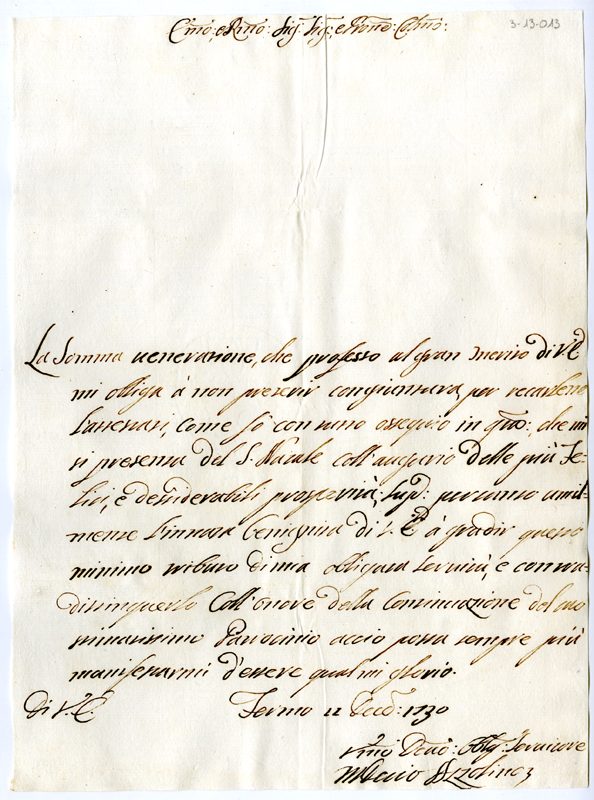 3-13-013
Emo: e Rmo: Sig: Sig:, e Prone Colmo:
La Somma venerazione, che professo al gran merito di V.E
mi obliga à non preterir congiuntura, per recarlene
l'attestati, come fò con tutto ossequio in qta:, che mi
si presenta del S. Natale coll'augurio delle più Fe-
lici, e desiderabili prosperità; Sup: pertanto umil-
mente l'innata benignità di V.E. à gradir questo
minimo tributo di mia obligata servitù, e contra-
distinguerlo Coll'onore della Continuazione del suo
stimatissimo Patrocinio acciò possa sempre più
manifestarmi d'essere qual mi glorio.
Di V.E. Fermo 22 Xbre 1730
Devo: Oblig: Servitore
Decio Azzolino